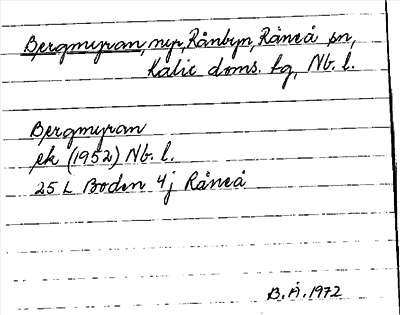 Bergmyran, myr, Rånbyn, Råneå sn,
Kalix doms. tg, Nb. l.
Bergmyran
ek (1952) Nb. l.
25 L Boden 4j Råneå
B. Å. 1972